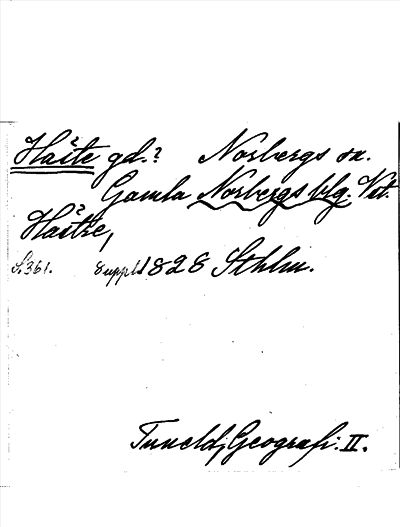 Häste gd.? Norbergs sn.
Gamla Norbergs blg. Vst.
Hästze,
S.361. suppl. 1828 Sthlm.
Tuneld, Geografi. II.